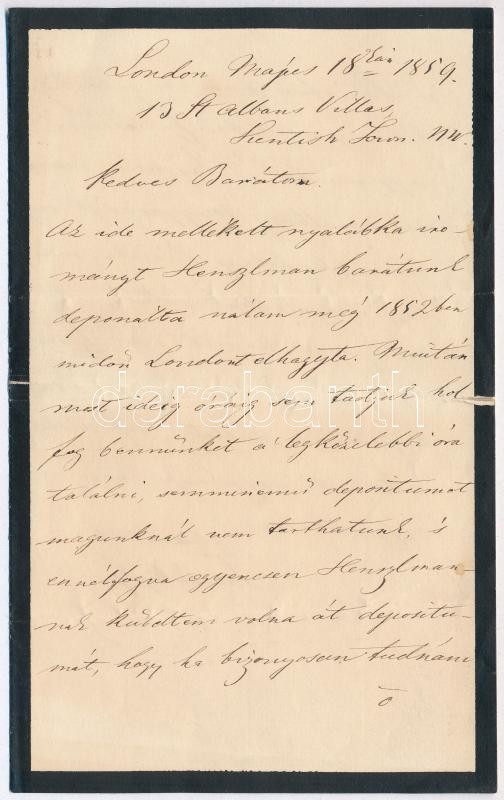 London Május 18kán 1859.
13 St Albans Villas,
Kentish Town. NW.
Kedves Barátom.
Az ide mellékelt nyalábka iro-
mányt Henszlman barátunk
deponálta nálam még 1852ben
midőn Londont elhagyta. Miután
most ideig óráig sem tudjuk hol
fog bennünket a legközelebbi óra
találni, semminemű depositumot
magunknál nem tarthatunk, és
ennélfogva egyenesen Henszlman-
nak küldtem volna át depositu-
mát, hogy ha bizonyosan tudnám
ő
darabanth